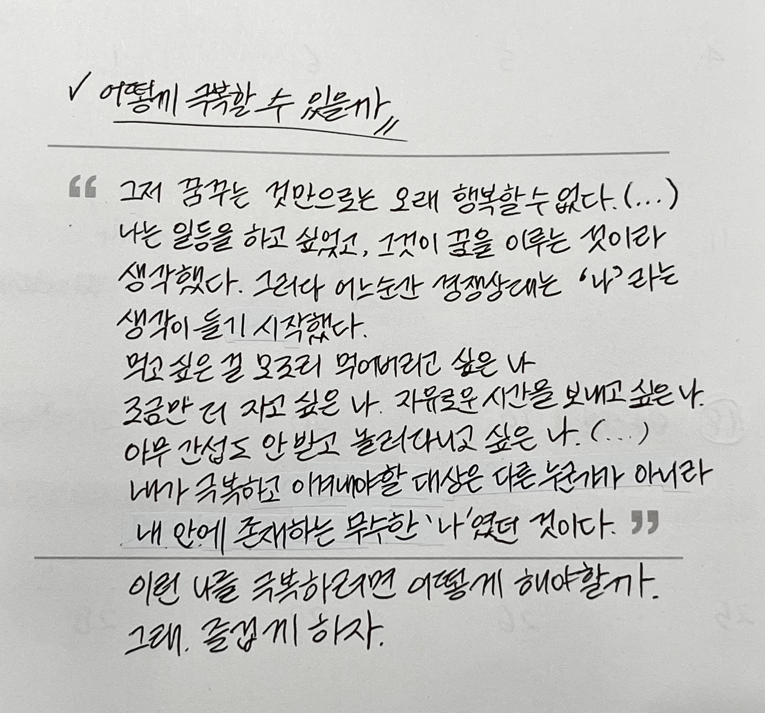 ✓ 어떻게 극복할 수 있을까
“ 그저 꿈꾸는 것만으로는 오래 행복할 수 없다. (...)
나는 일등을 하고 싶었고, 그것이 꿈을 이루는 것이라
생각했다. 그러다 어느순간 경쟁상대는 ‘나’라는
생각이 들기 시작했다.
먹고 싶은 걸 모조리 먹어버리고 싶은 나
조금만 더 자고 싶은 나. 자유로운 시간을 보내고 싶은 나.
아무 간섭도 안 받고 놀러다니고 싶은 나. (...)
내가 극복하고 이겨내야할 대상은 다른 누군가가 아니라
내 안에 존재하는 무수한 ‘나’였던 것이다. ”
이런 나를 극복하려면 어떻게 해야할까.
그래. 즐겁게 하자.